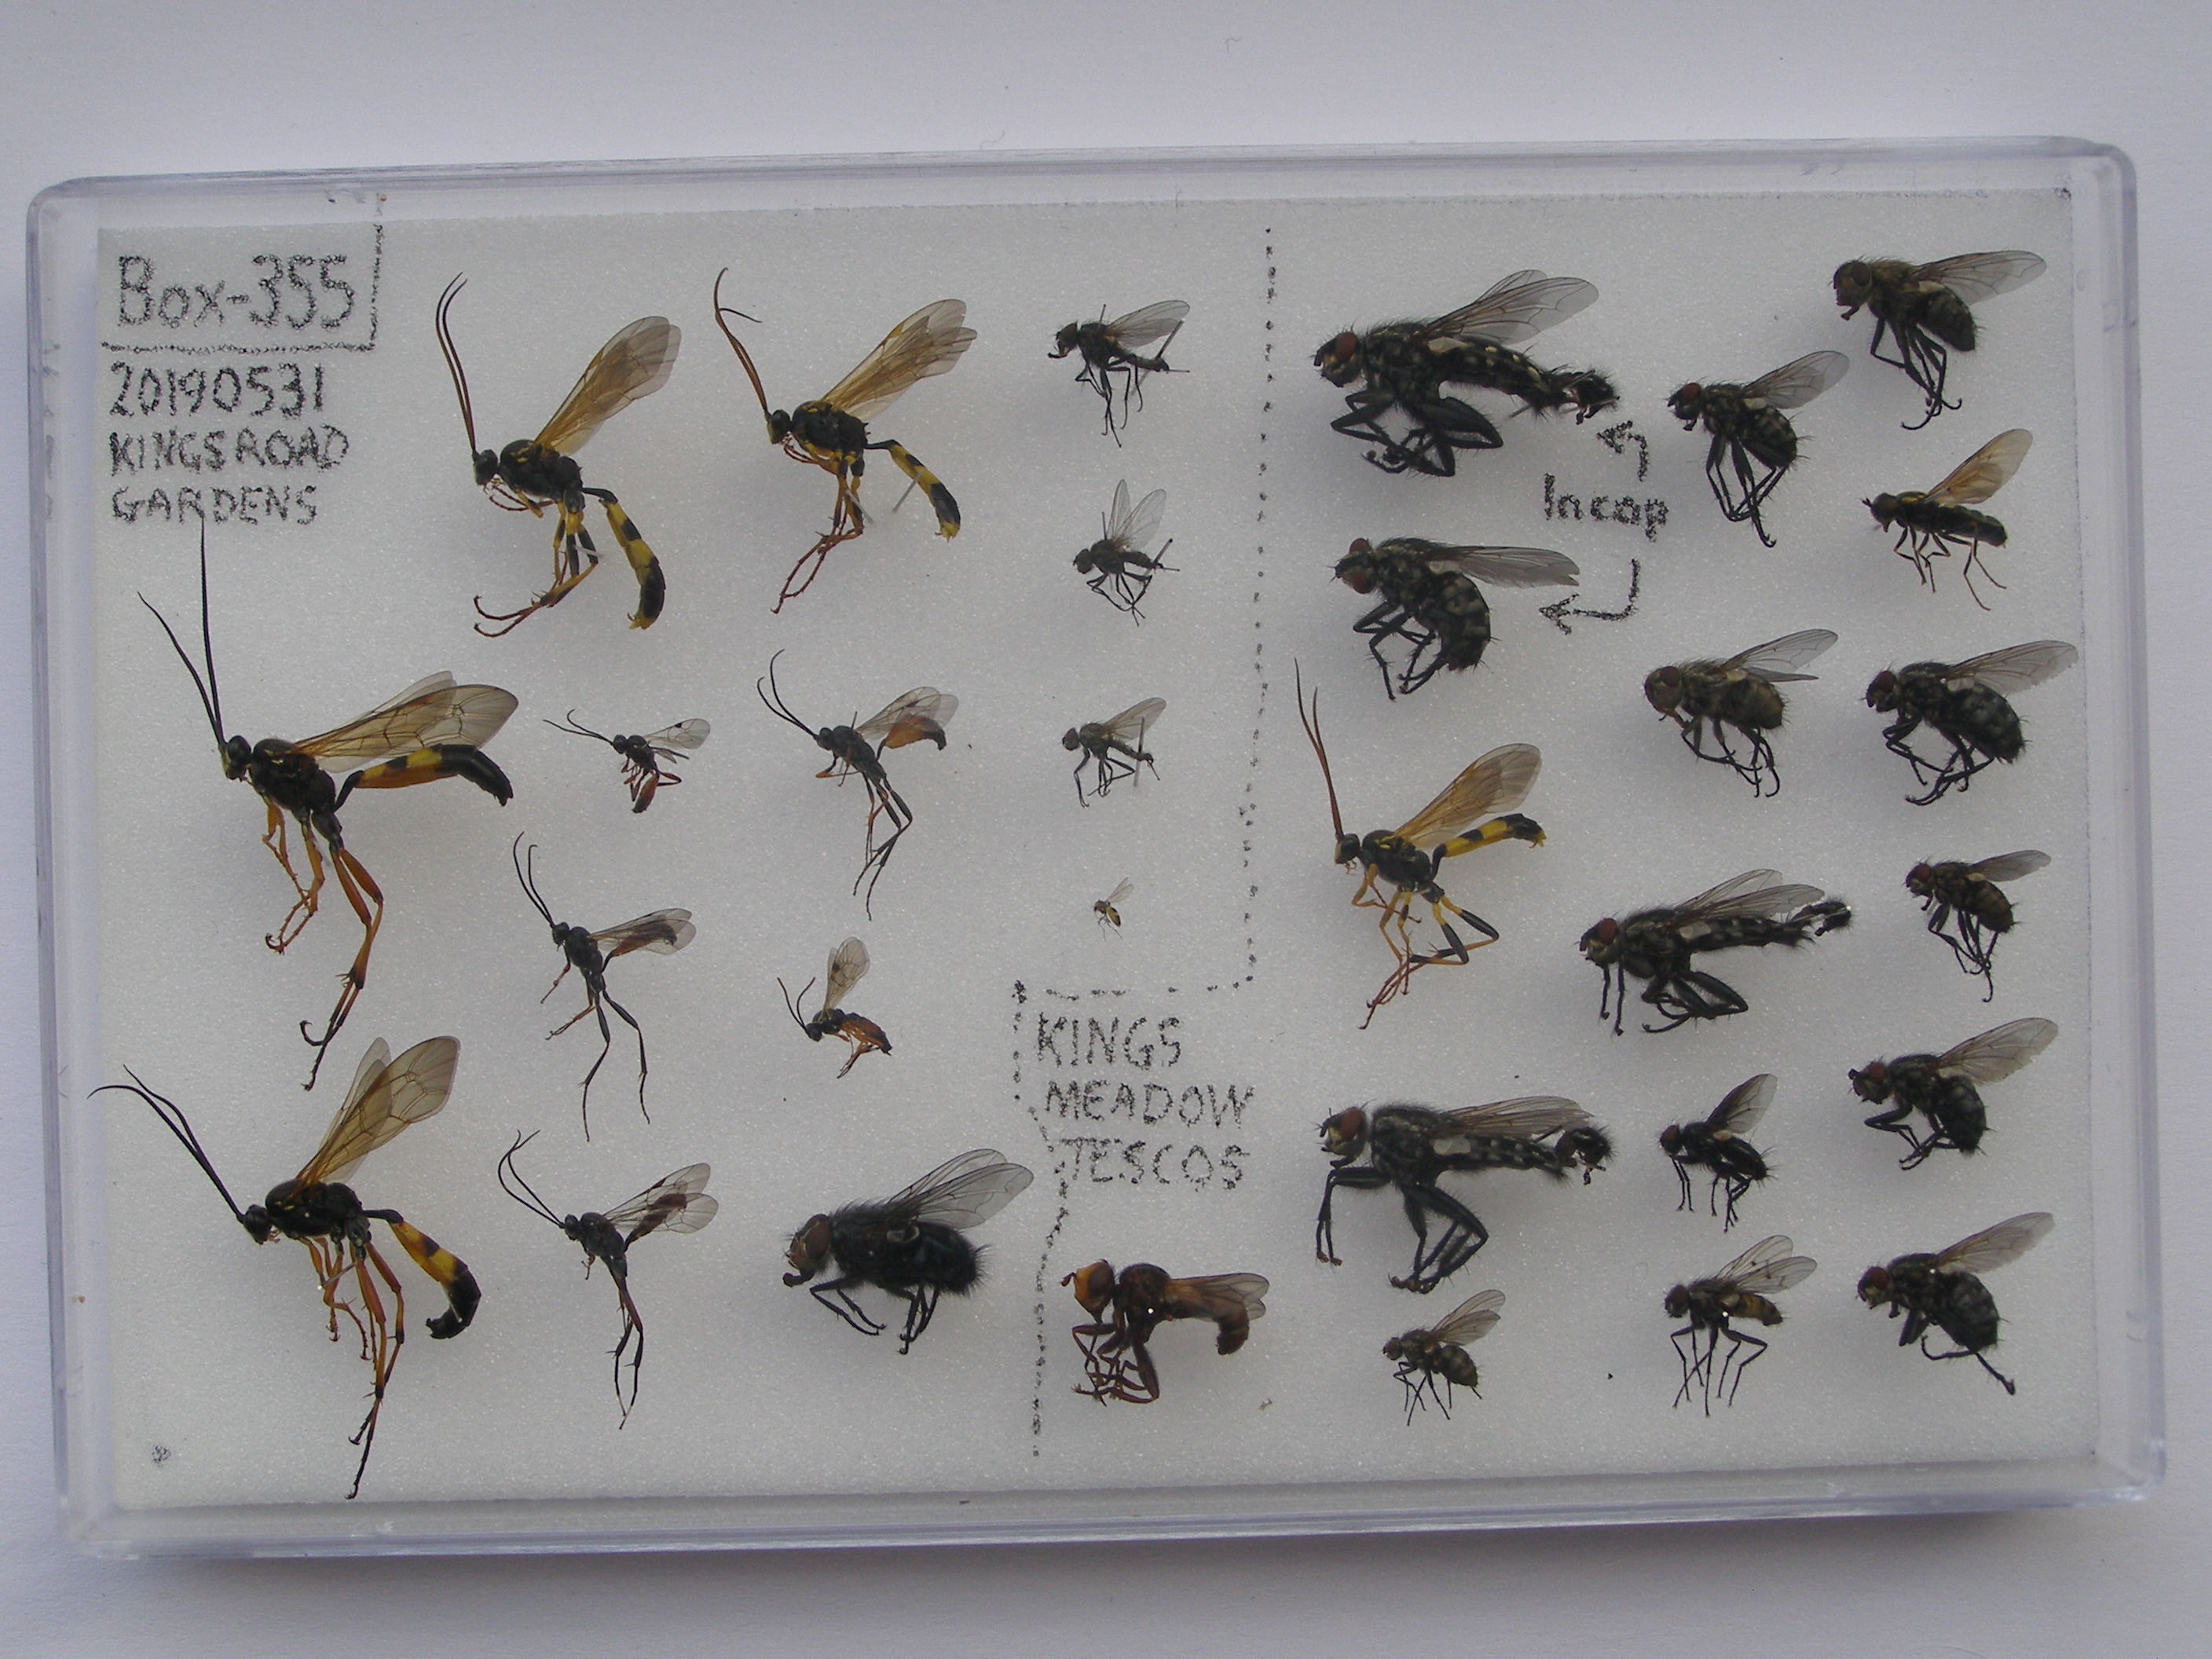 Box-355
20190531
KINGSROAD
GARDENS
In cop
KINGS
MEADOW
TESCOS